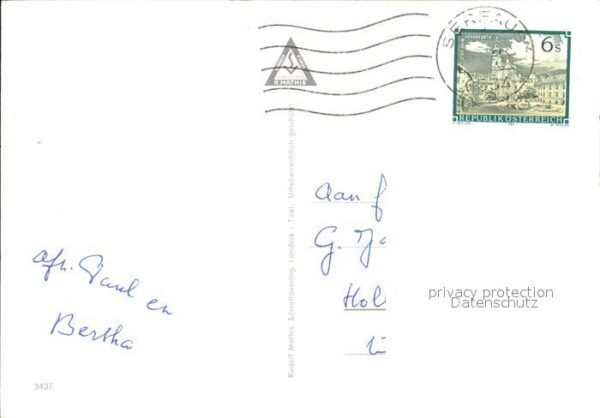 SERFAUS
6s
REPUBLIK ÖSTERREICH
R. MATHIS
Rudolf Mathis, Silvrettaverlag, Landeck - Tirol. Urheberrechtlich geschützt
Aan f
G. Ja
Hol
privacy protection
Datenschutz
afz. Paul en
Bertha
3437